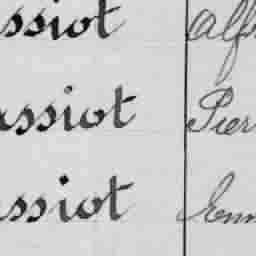 ssiot Alf
assiot Pier
assiot Emm